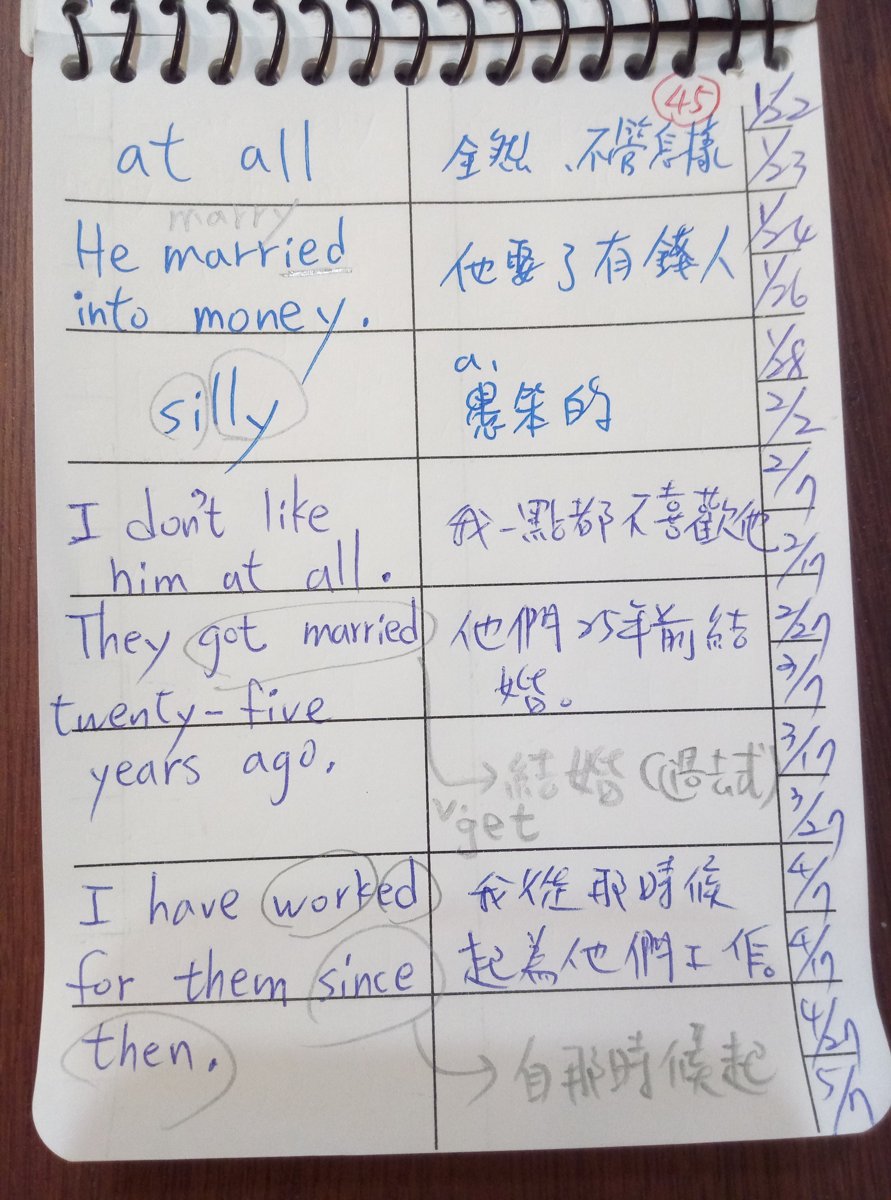 45
at all
全然、不管怎樣
marry
He married
into money.
他娶了有錢人
silly
a.
愚笨的
I don't like
him at all.
我一點都不喜歡他
They got married
twenty-five
years ago.
他們25年前結
婚。
結婚(過去式)
v. get
I have worked
for them since
then.
我從那時候
起為他們工作。
自那時候起
1/22
1/23
1/24
1/26
1/28
2/2
2/7
2/17
2/27
3/7
3/17
3/27
4/7
4/17
4/27
5/7